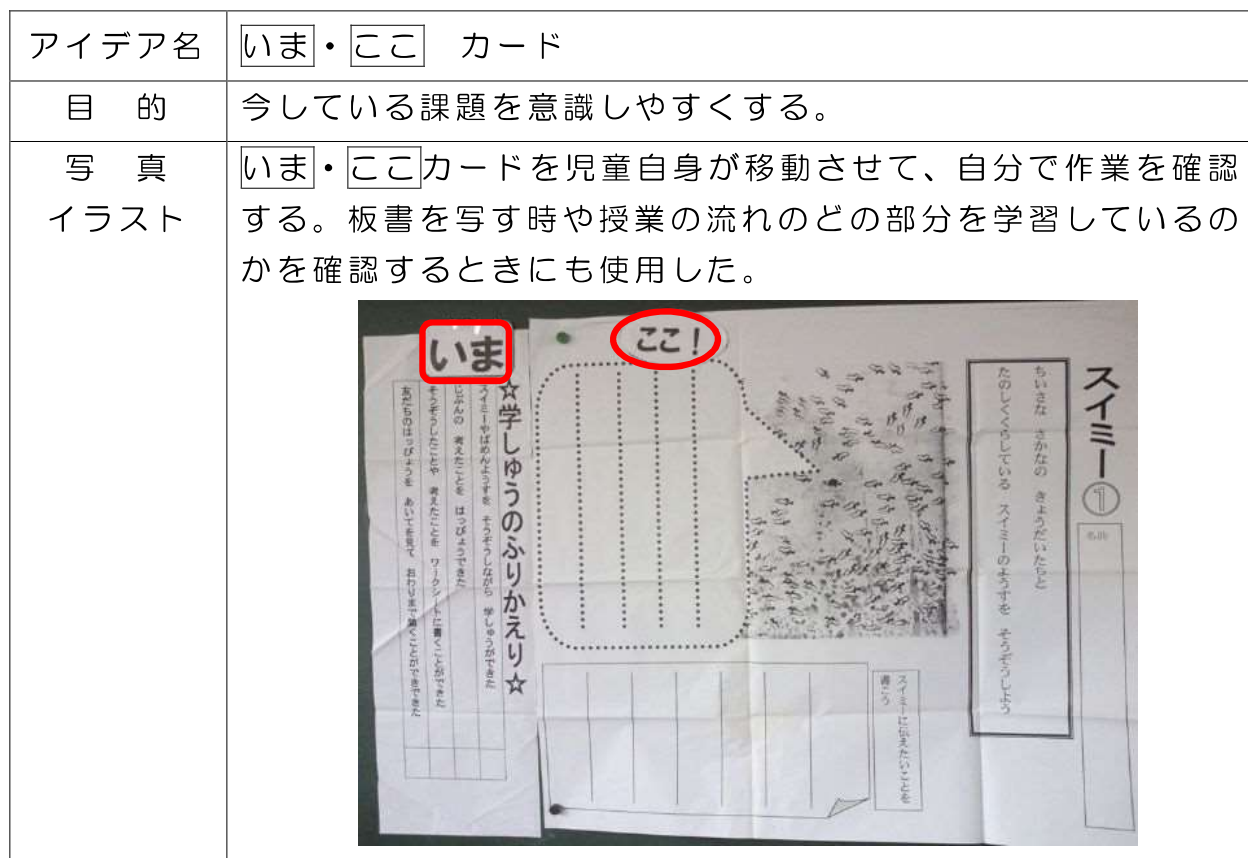 アイデア名
いま・ここ　カード
目　的
今している課題を意識しやすくする。
写　真
イラスト
いま・ここカードを児童自身が移動させて、自分で作業を確認
する。板書を写す時や授業の流れのどの部分を学習しているの
かを確認するときにも使用した。
スイミー①
名前
ちいさな　さかなの　きょうだいたちと
たのしくくらしている　スイミーのようすを　そうぞうしよう
スイミーに伝えたいことを
書こう
ここ！
いま
☆学しゅうのふりかえり☆
スイミーやばめんようすを　そうぞうしながら　学しゅうができた
じぶんの　考えたことを　はっぴょうできた
そうぞうしたことや　考えたことを　ワークシートに書くことができた
友だちのはっぴょうを　あいてを見て　おわりまで聞くことができできた